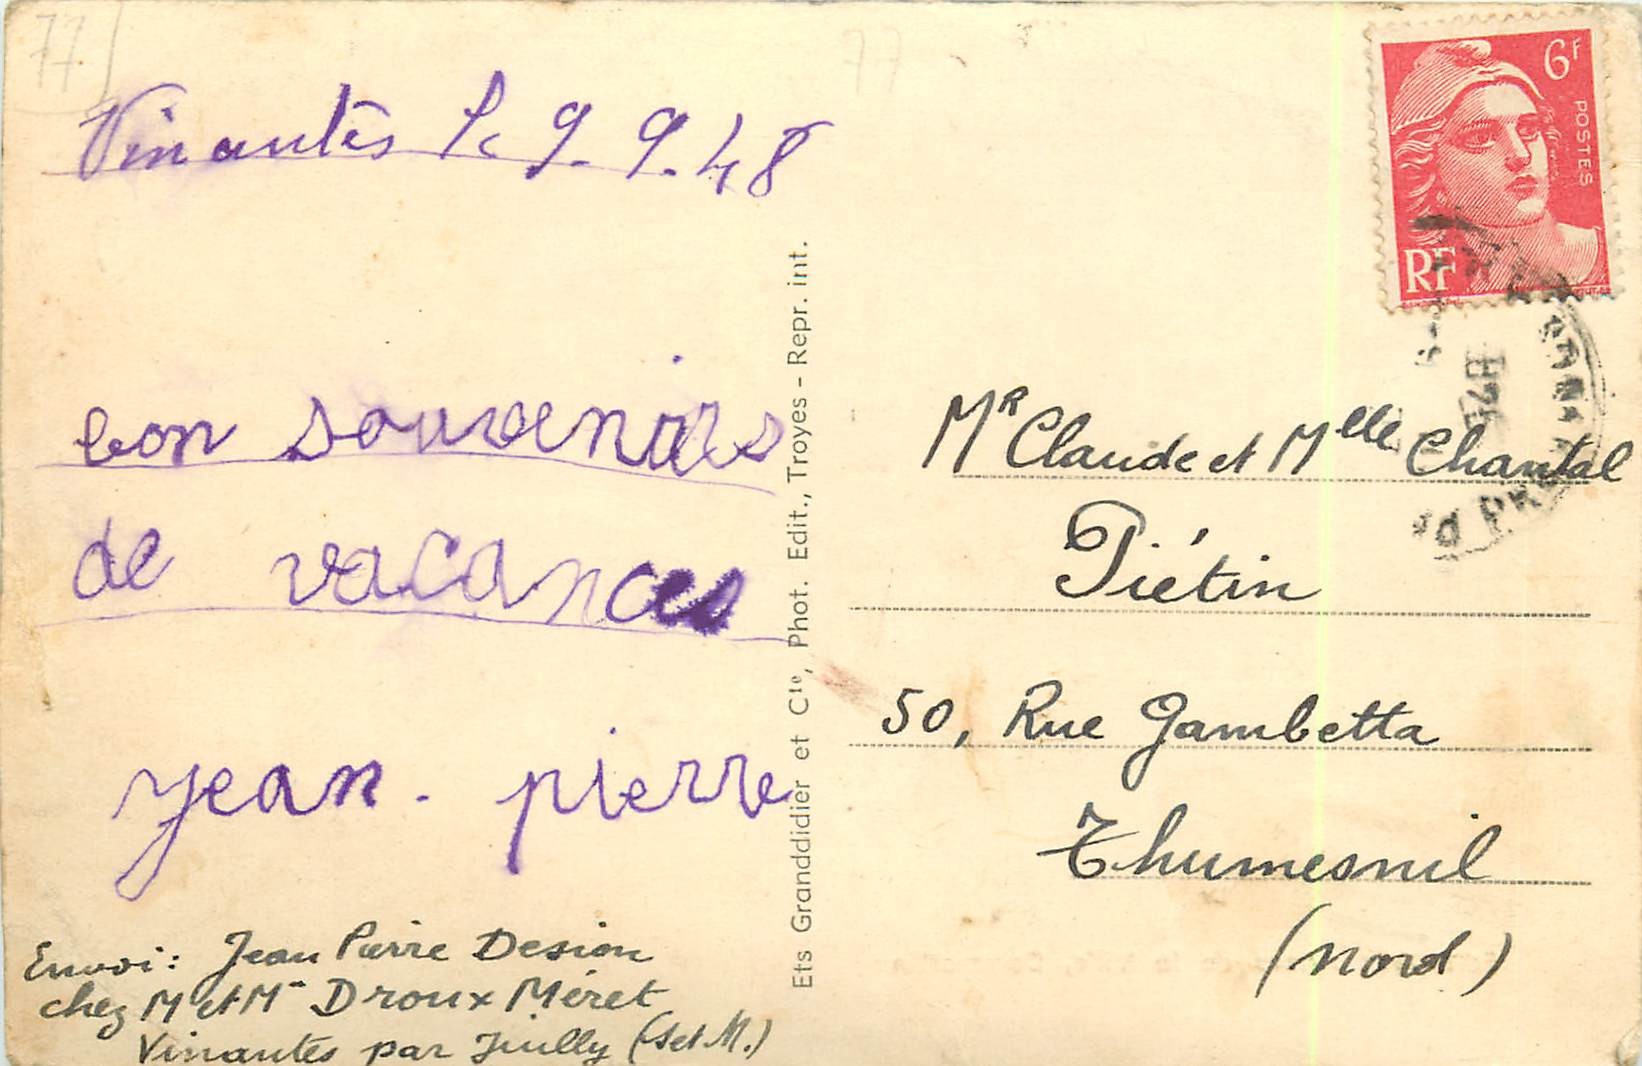 77
77
Vinantes le 9.9.48
bon souvenirs
de vacances
jean. pierre
Envoi: Jean Pierre Desion
chez M et Mᵐ Droux Méret
Vinantes par Juilly (S et M.)
Ets Granddidier et Cie, Phot. Edit., Troyes - Repr. int.
6F
POSTES
RF
Mr Claude et Melle Chantal
Piétin
50, Rue Gambetta
Thumesnil
(Nord)